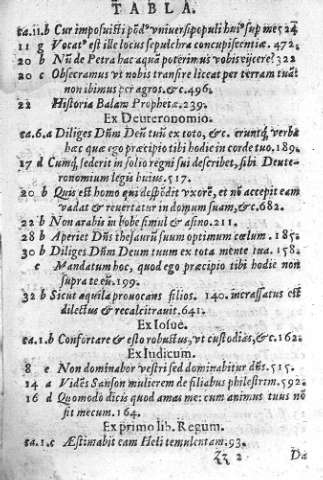 TABLA.
ca.11.b Cur imposuisti põd⁹ vniversi populi hui⁹ sup me 524
11 g Vocat⁹ est ille locus sepulchra concupiscentiæ. 472.
20 b Nũ de Petra hac aquã poterimus vobis eijcere? 322
20 c Obsecramus vt nobis transire liceat per terram tuã
non ibimus per agros. &c. 496.
22 Historia Balam Prophetæ. 239.
Ex Deuteronomio.
ca.6.a Diliges Dñm Deũ tuũ ex toto, &c. eruntq́; verba
hæc quæ ego præcipio tibi hodie in corde tuo. 189.
17 d Cumq́; sederit in solio regni sui describet, sibi Deute-
ronomium legis huius. 517.
20 b Quis est homo qui despõdit vxorẽ, et nõ accepit eam
vadat & reuertatur in domum suam, &c. 682.
22 b Non arabis in bobe simul & asino. 211.
28 b Aperiet Dñs thesaurũ suum optimum cœlum. 185.
30 b Diliges Dñm Deum tuum ex tota mente tua. 158.
c Mandatum hoc, quod ego præcipio tibi hodie non
supra te eũ. 199.
32 b Sicut aquila prouocans filios. 140. incrassatus est
dilectus & recalcitrauit. 641.
Ex Iosue.
ca.1.b Confortare & esto robustus, vt custodias, &c. 162.
Ex Iudicum.
8 e Non dominabor vestri sed dominabitur dñs. 515.
14 a Vidẽs Sanson mulierem de filiabus philestiim. 592.
16 d Quomodo dicis quod amas me: cum animus tuus nõ
sit mecum. 164.
Ex primo lib. Regum.
ca.1.c Æstimabit eam Heli temulentam. 93.
Zz 2 Da